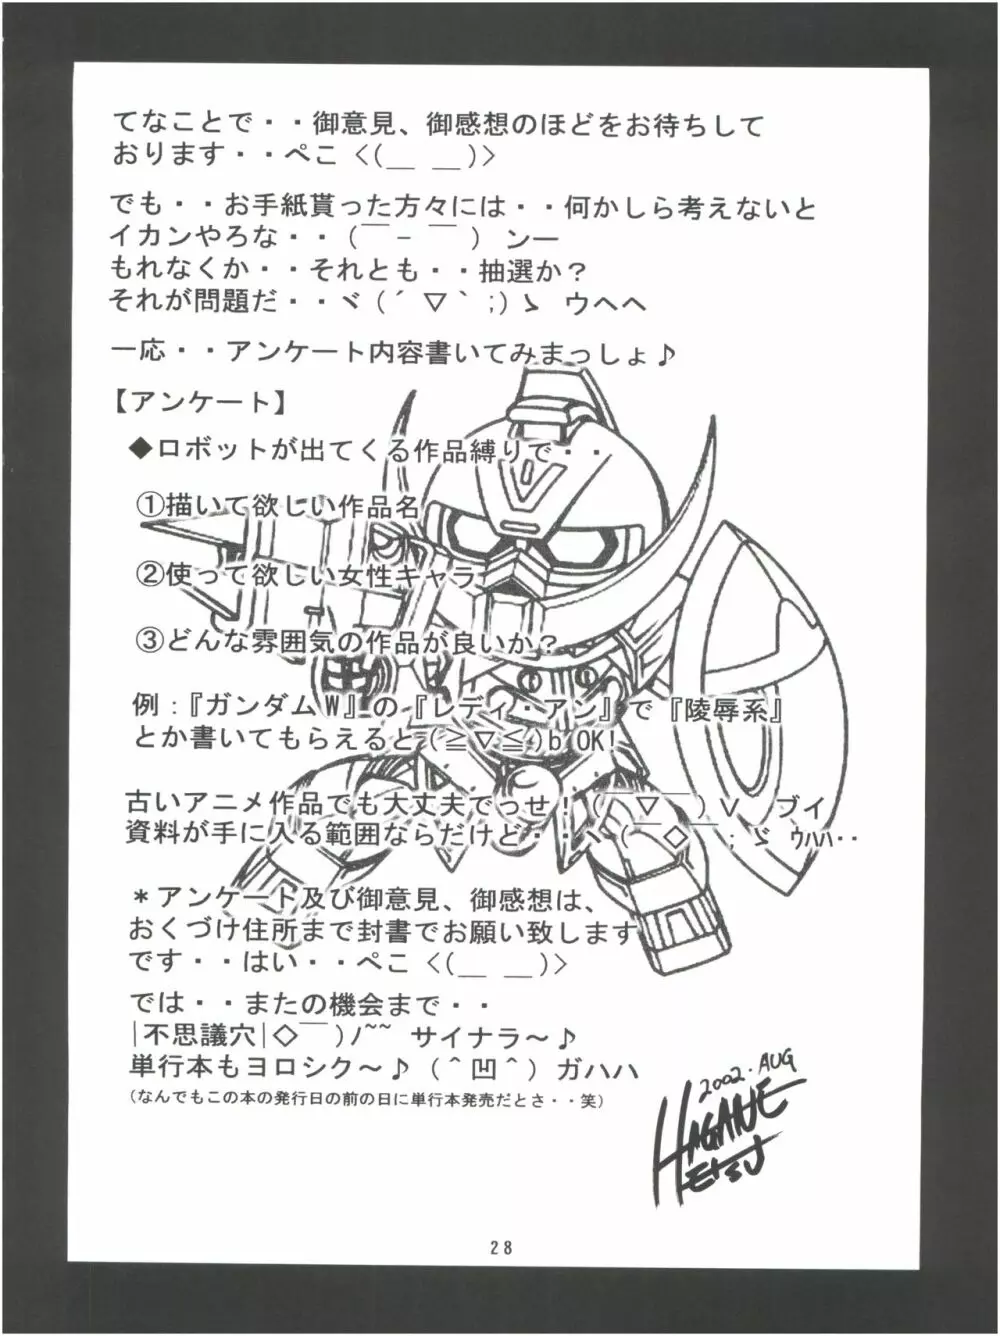 てなことで・・御意見、御感想のほどをお待ちして
おります・・ぺこ <(＿ ＿)>
でも・・お手紙貰った方々には・・何かしら考えないと
イカンやろな・・(￣－￣) ンー
もれなくか・・それとも・・抽選か？
それが問題だ・・ヾ(´▽｀;)ゝ ウヘヘ
一応・・アンケート内容書いてみまっしょ♪
【アンケート】
◆ロボットが出てくる作品縛りで・・
①描いて欲しい作品名
②使って欲しい女性キャラ
③どんな雰囲気の作品が良いか？
例：『ガンダムW』の『レディ・アン』で『陵辱系』
とか書いてもらえると(≧▽≦)b OK!
古いアニメ作品でも大丈夫でっせ！(￣▽￣)V ブイ
資料が手に入る範囲ならだけど・・ヽ(￣◇￣;ゞ ｳﾊﾊ・・
＊アンケート及び御意見、御感想は、
おくづけ住所まで封書でお願い致します
です・・はい・・ぺこ <(＿ ＿)>
では・・またの機会まで・・
|不思議穴|◇￣)ノ~~ サイナラ～♪
単行本もヨロシク～♪(＾凹＾)ガハハ
(なんでもこの本の発行日の前の日に単行本発売だとさ・・笑)
2002.AUG
HAGANE
TETSU
28